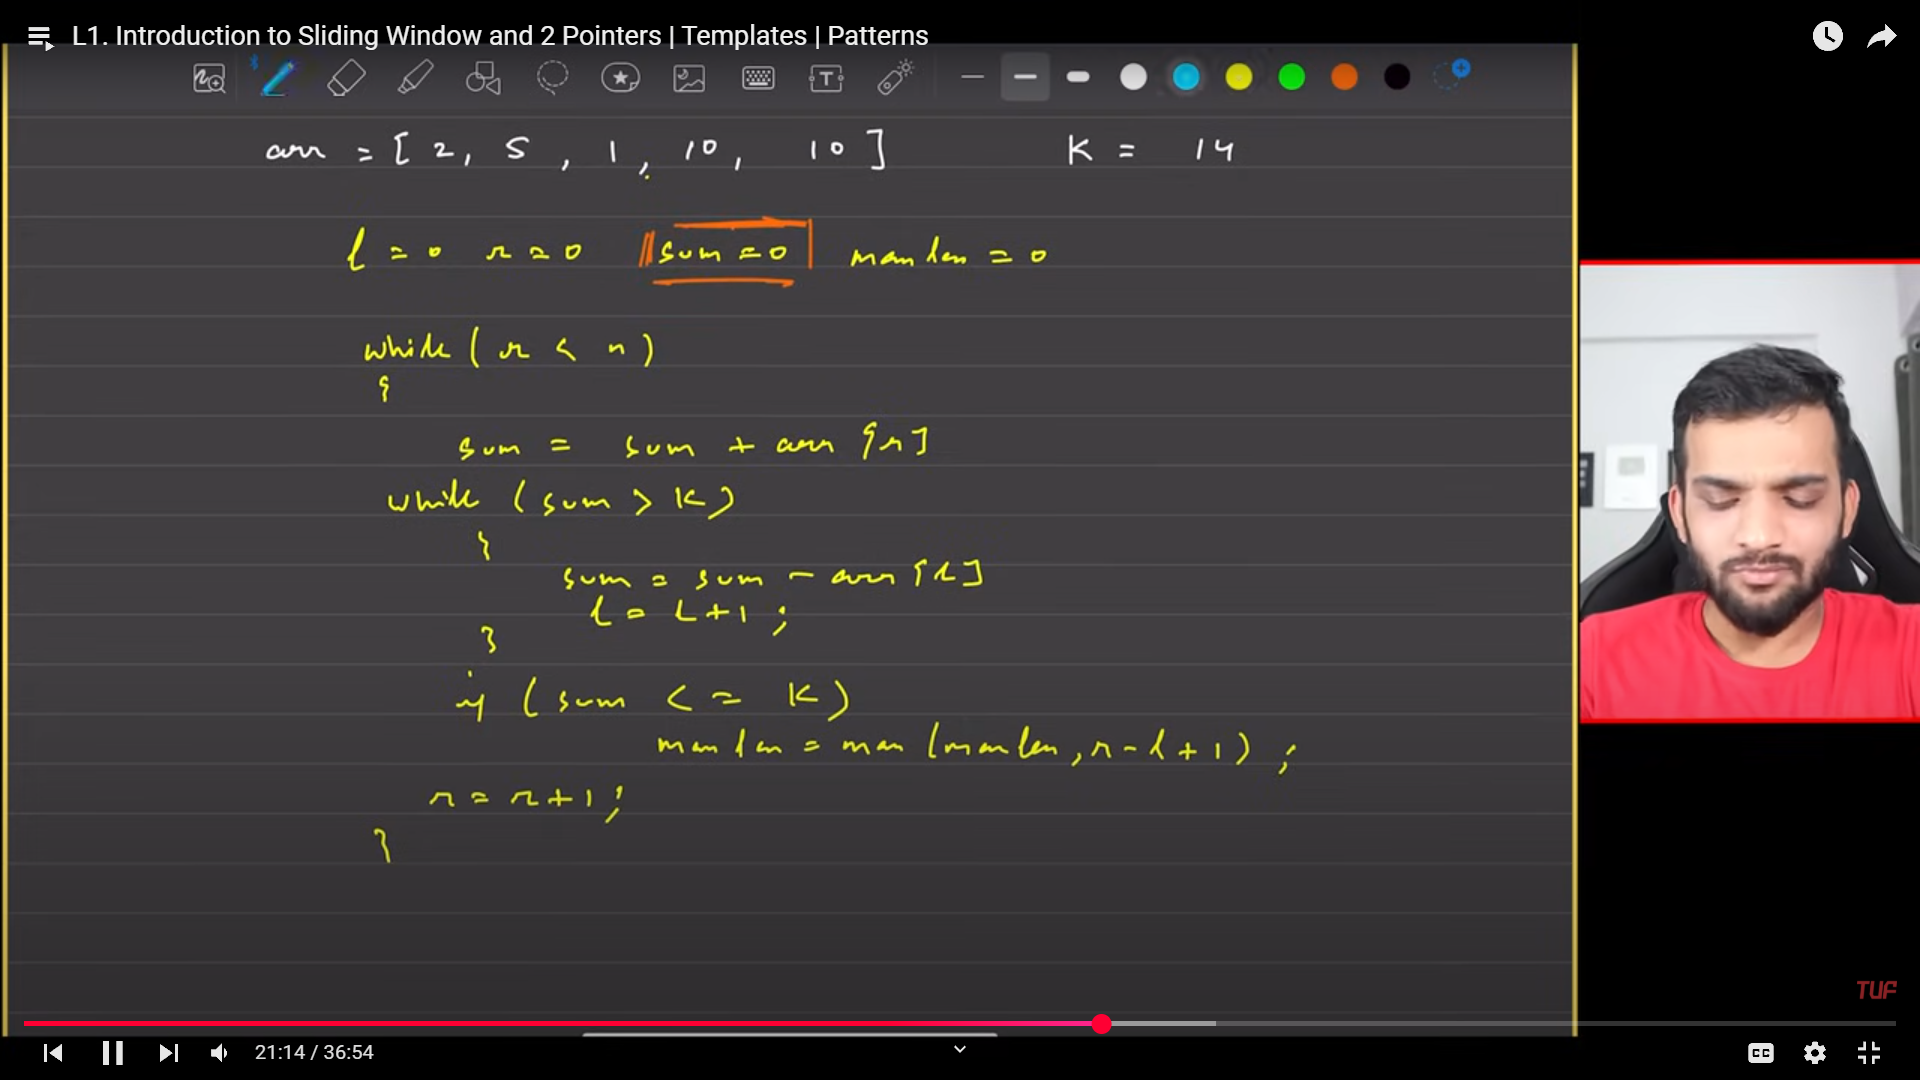 L1. Introduction to Sliding Window and 2 Pointers | Templates | Patterns
arr = [ 2, 5, 1, 10, 10 ] K = 14
l = 0 r = 0 sum = 0 maxlen = 0
while ( r < n )
{
sum = sum + arr [r]
while ( sum > K )
{
sum = sum - arr [l]
l = l + 1 ;
}
if ( sum <= K )
maxlen = max (maxlen, r - l + 1) ;
r = r + 1 ;
}
TUF
21:14 / 36:54
CC